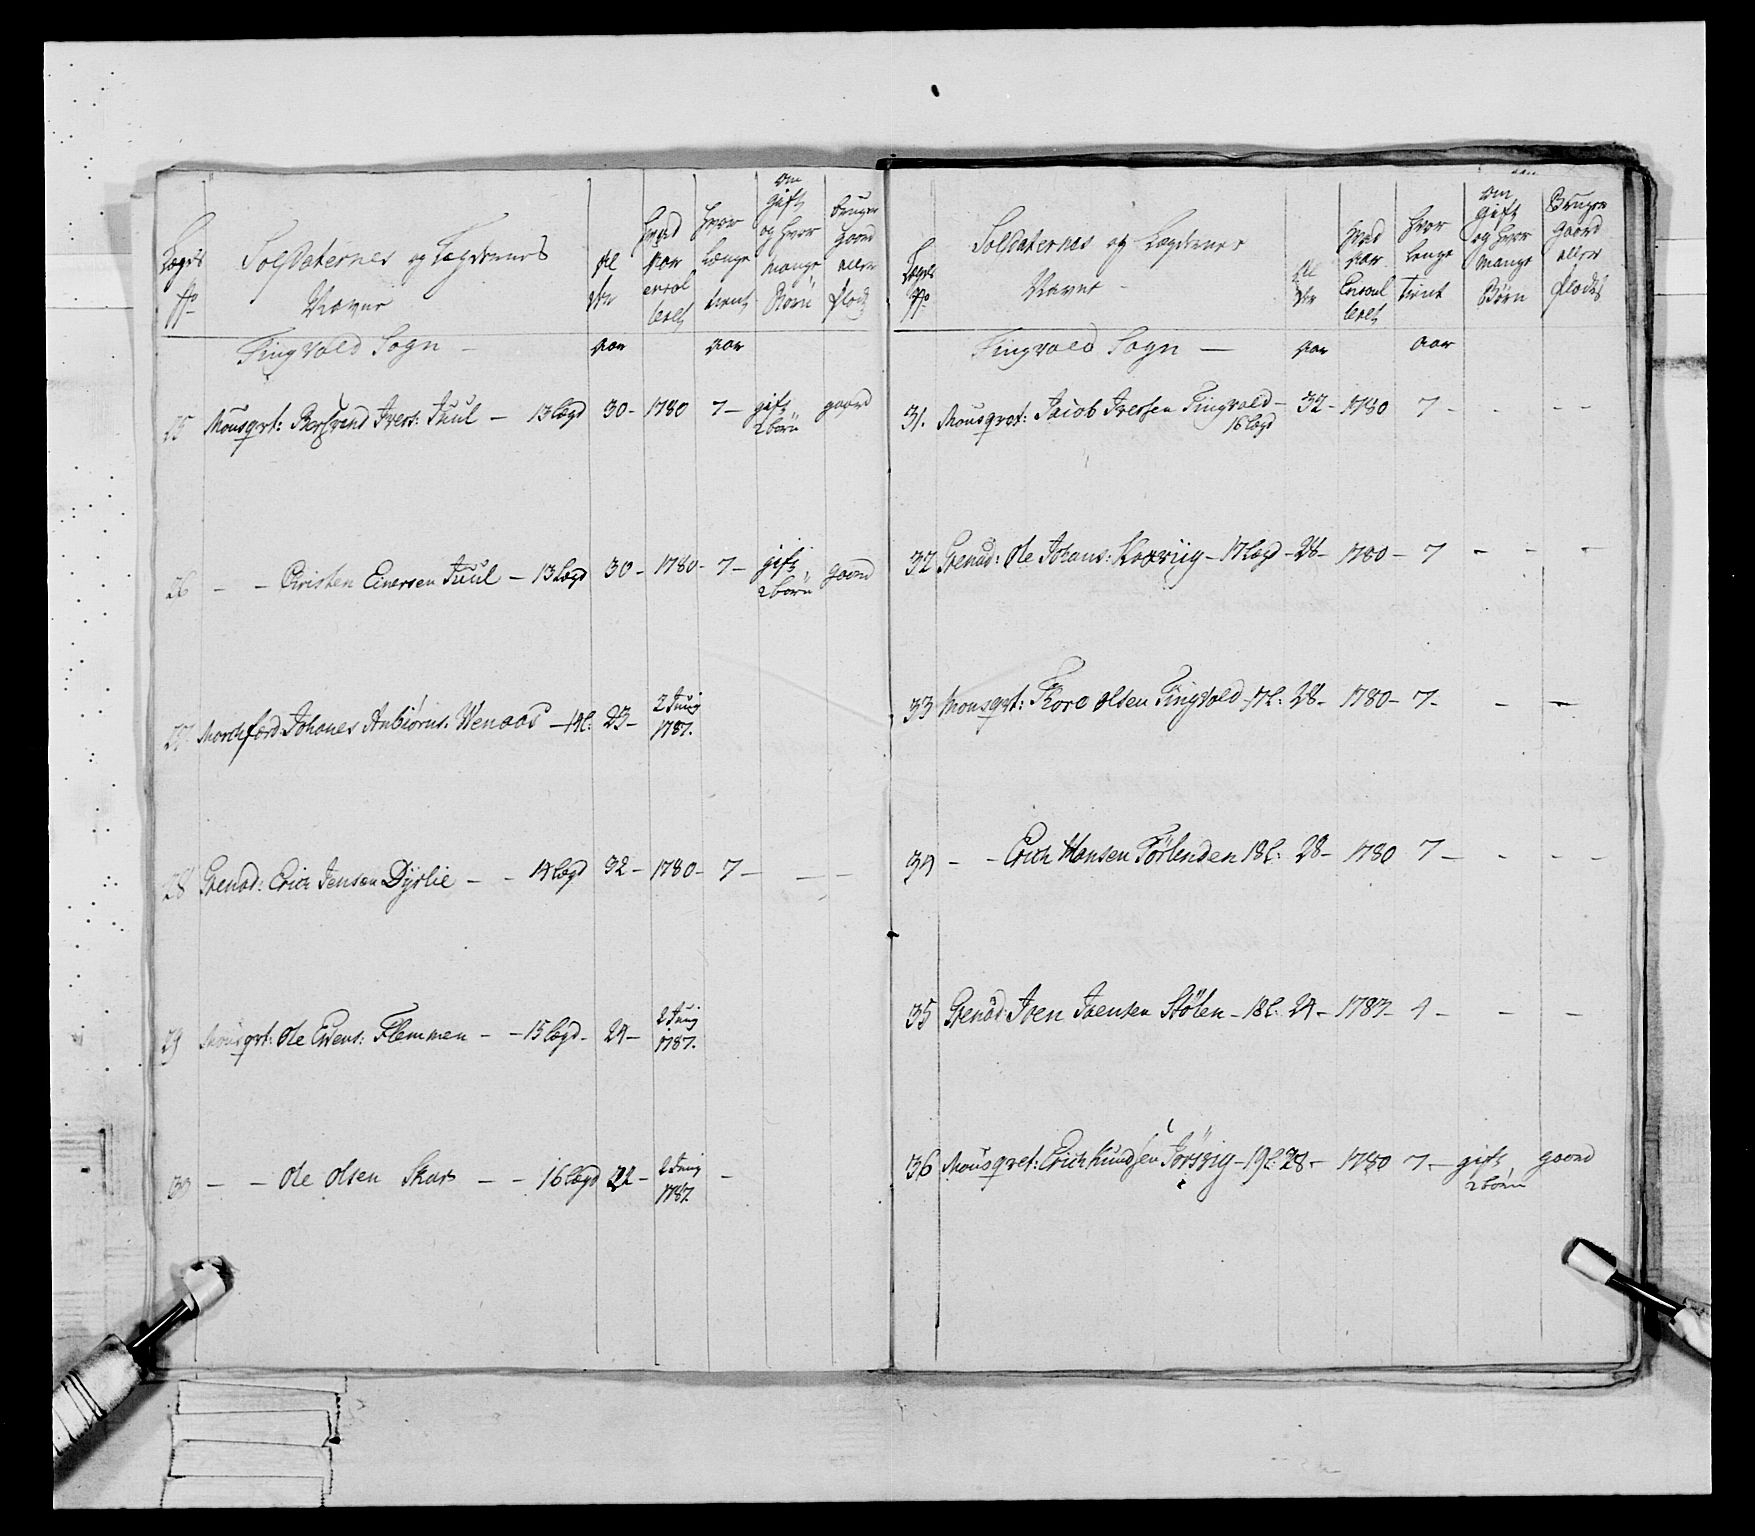 Lægds No Soldaternes og Lægdernes Navne Al der Hvad Aar enrol leret Hvor Længe tient Om Gift og Hvor Mange Børn bruger Gaard eller Plads
Tingvold Sogn — Aar Aar
25 Mousqrt: Ivers: Juul — 13 Lægd 30 – 1780 7 – gift 2 børn gaard
26 – – Christen Enersen Juul – 13 Lægd 30 – 1780 – 7 – gift 2 børn gaard
27 Johanes Anbiørns: Wenaas – 14 l: 23 – 2 Junij 1787.
28 Grenad: Erich Jensen Dyrlie – – 14 Lægd 32 – 1780 – 7 – – –
29 Mousqrt: Ole Evens: Flemmen – – 15 Lægd – 24 – 2 Junij 1787.
30 – – Ole Olsen Skar – – 16 Lægd 22 – 2 Junij 1787. –
Lægds No Soldaternes og Lægdernes Navne – Al der Hvad Aar Enroul leret Hvor lenge tient Om Gift og Hvor Mange Børn Bruger Gaard eller Plads
Tingvold Sogn — Aar Aar
31. Mousqret: Jacob Iversen Tingvold – 32 – 1780 7 – – – –
16 Lægd
32 Grenad: Ole Johans: – 17 Lægd – 28 – 1780 – 7 – – –
33 Mousqrt: Thore Olsen Tingvold – 17 l: 28 – 1780 – 7 – – –
34 – – Erich Hansen Tørlenden 18 l: 28 – 1780 7 – – – –
35 Grenad: Iven Ivensen Stølen – 18 l: 24 – 1783 – 4 – – –
36 Mousqret: Erich Knudsen – 19 l: 28 – 1780 7 – gift 2 børn gaard